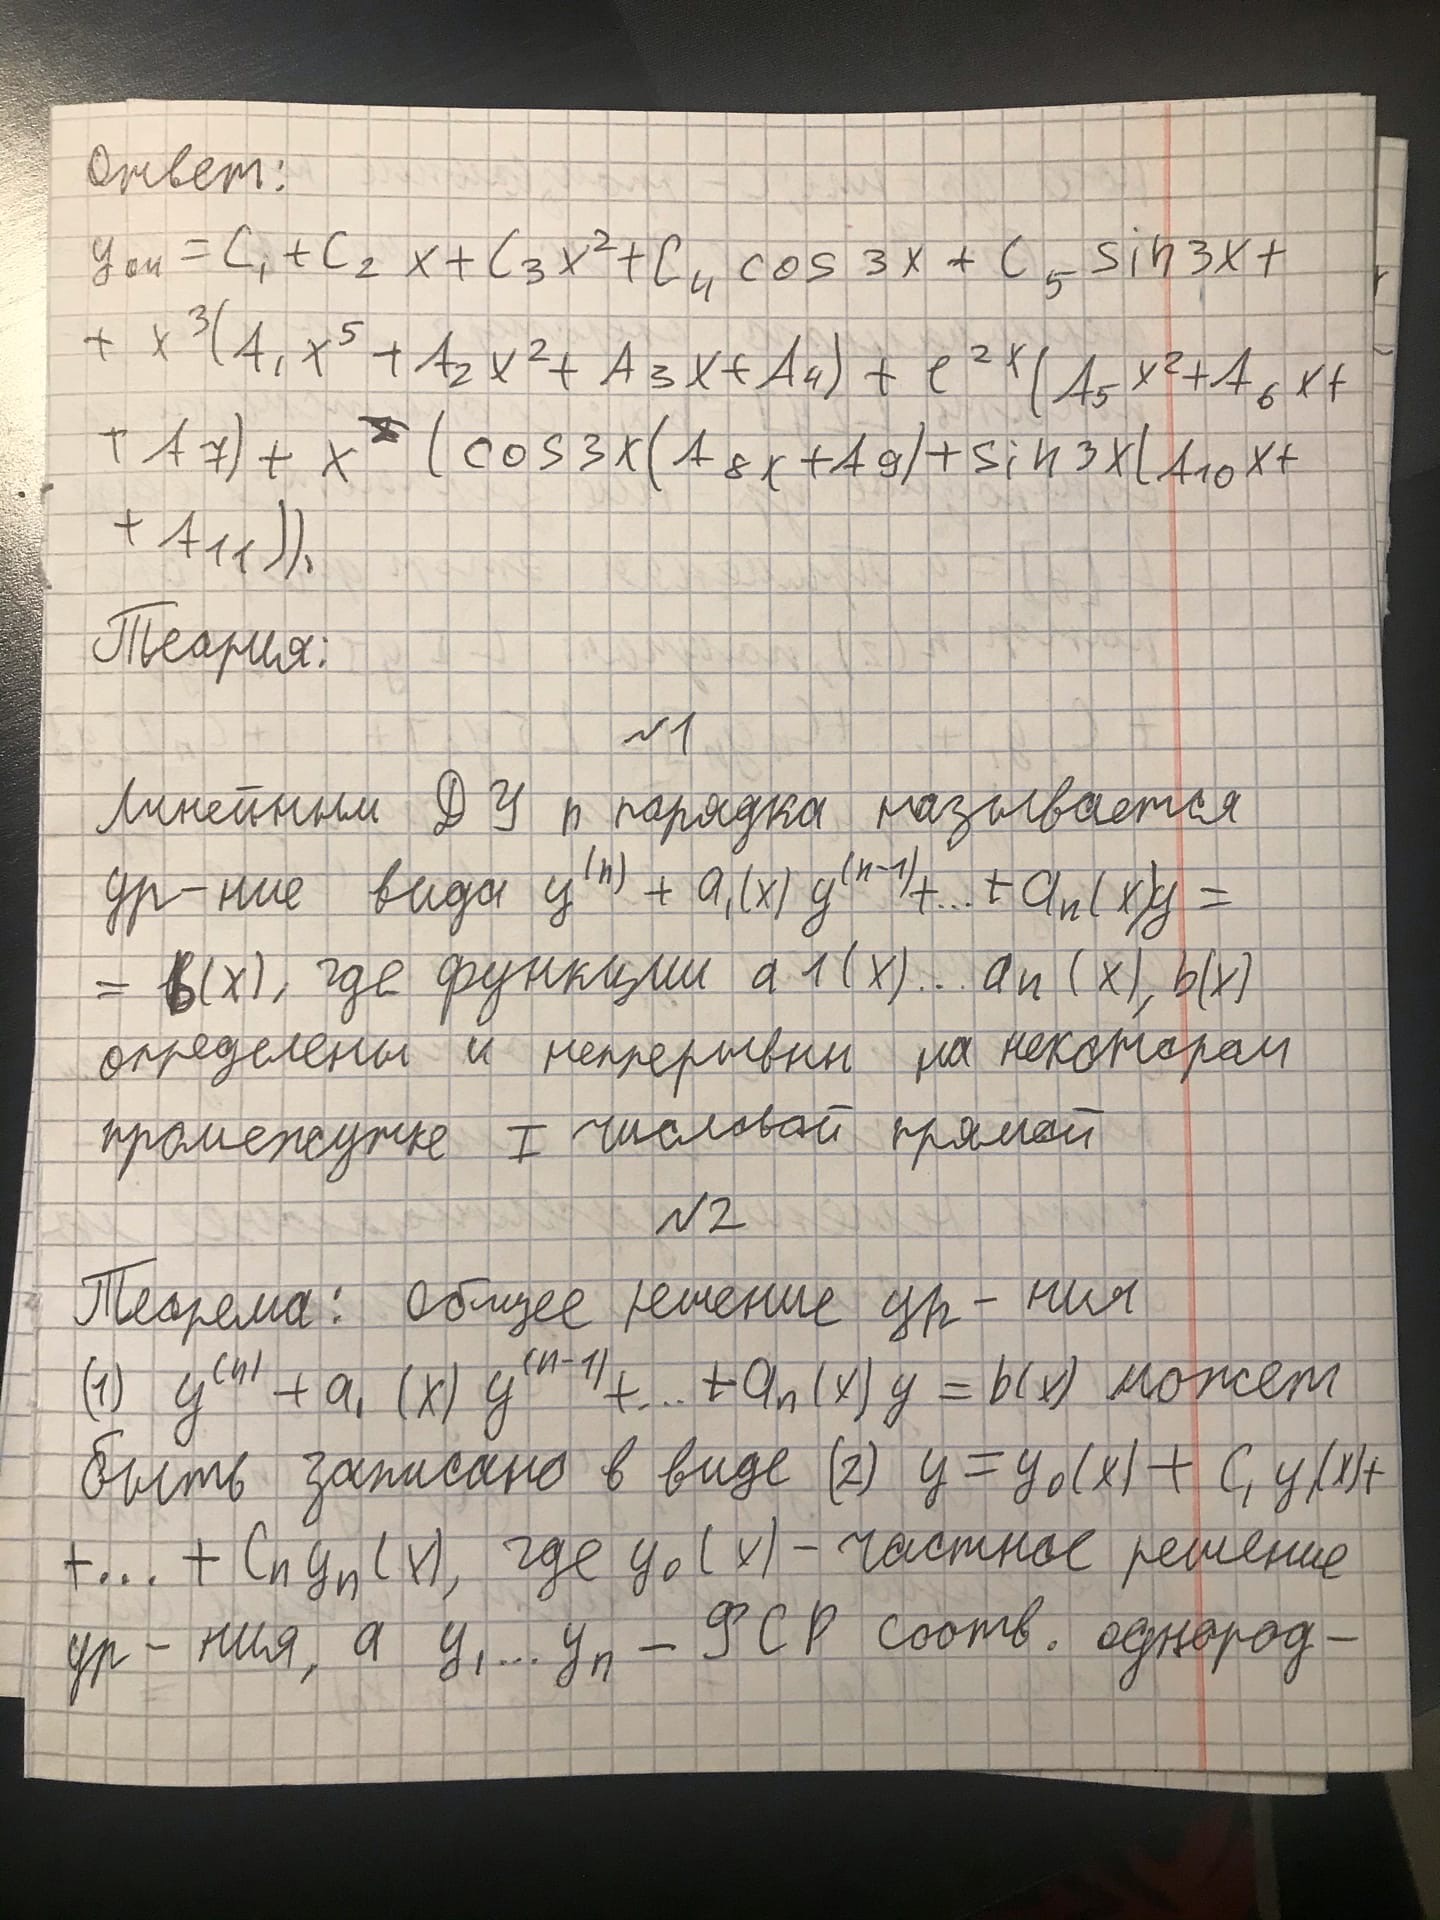 Ответ:
yон = C₁ + C₂ x + C₃x² + C₄ cos 3x + C₅ sin 3x +
+ x³(A₁x⁵ + A₂x² + A₃x + A₄) + e²ˣ(A₅x² + A₆x +
+ A₇) + x (cos3x(A₈x + A₉) + sin3x(A₁₀x +
+ A₁₁)).
Теория:
№1
Линейным ДУ n порядка называется
ур-ние вида y⁽ⁿ⁾ + a₁(x) y⁽ⁿ⁻¹⁾ + ... + aₙ(x)y =
= b(x), где функции a1(x)...aₙ(x), b(x)
определены и непрерывны на некотором
промежутке I числовой прямой
№2
Теорема: Общее решение ур-ния
(1) y⁽ⁿ⁾ + a₁(x) y⁽ⁿ⁻¹⁾ + ... + aₙ(x)y = b(x) может
быть записано в виде (2) y = y₀(x) + C₁y₁(x) +
+ ... + Cₙyₙ(x), где y₀(x) – частное решение
ур-ния, а y₁...yₙ – ФСР соотв. однород-